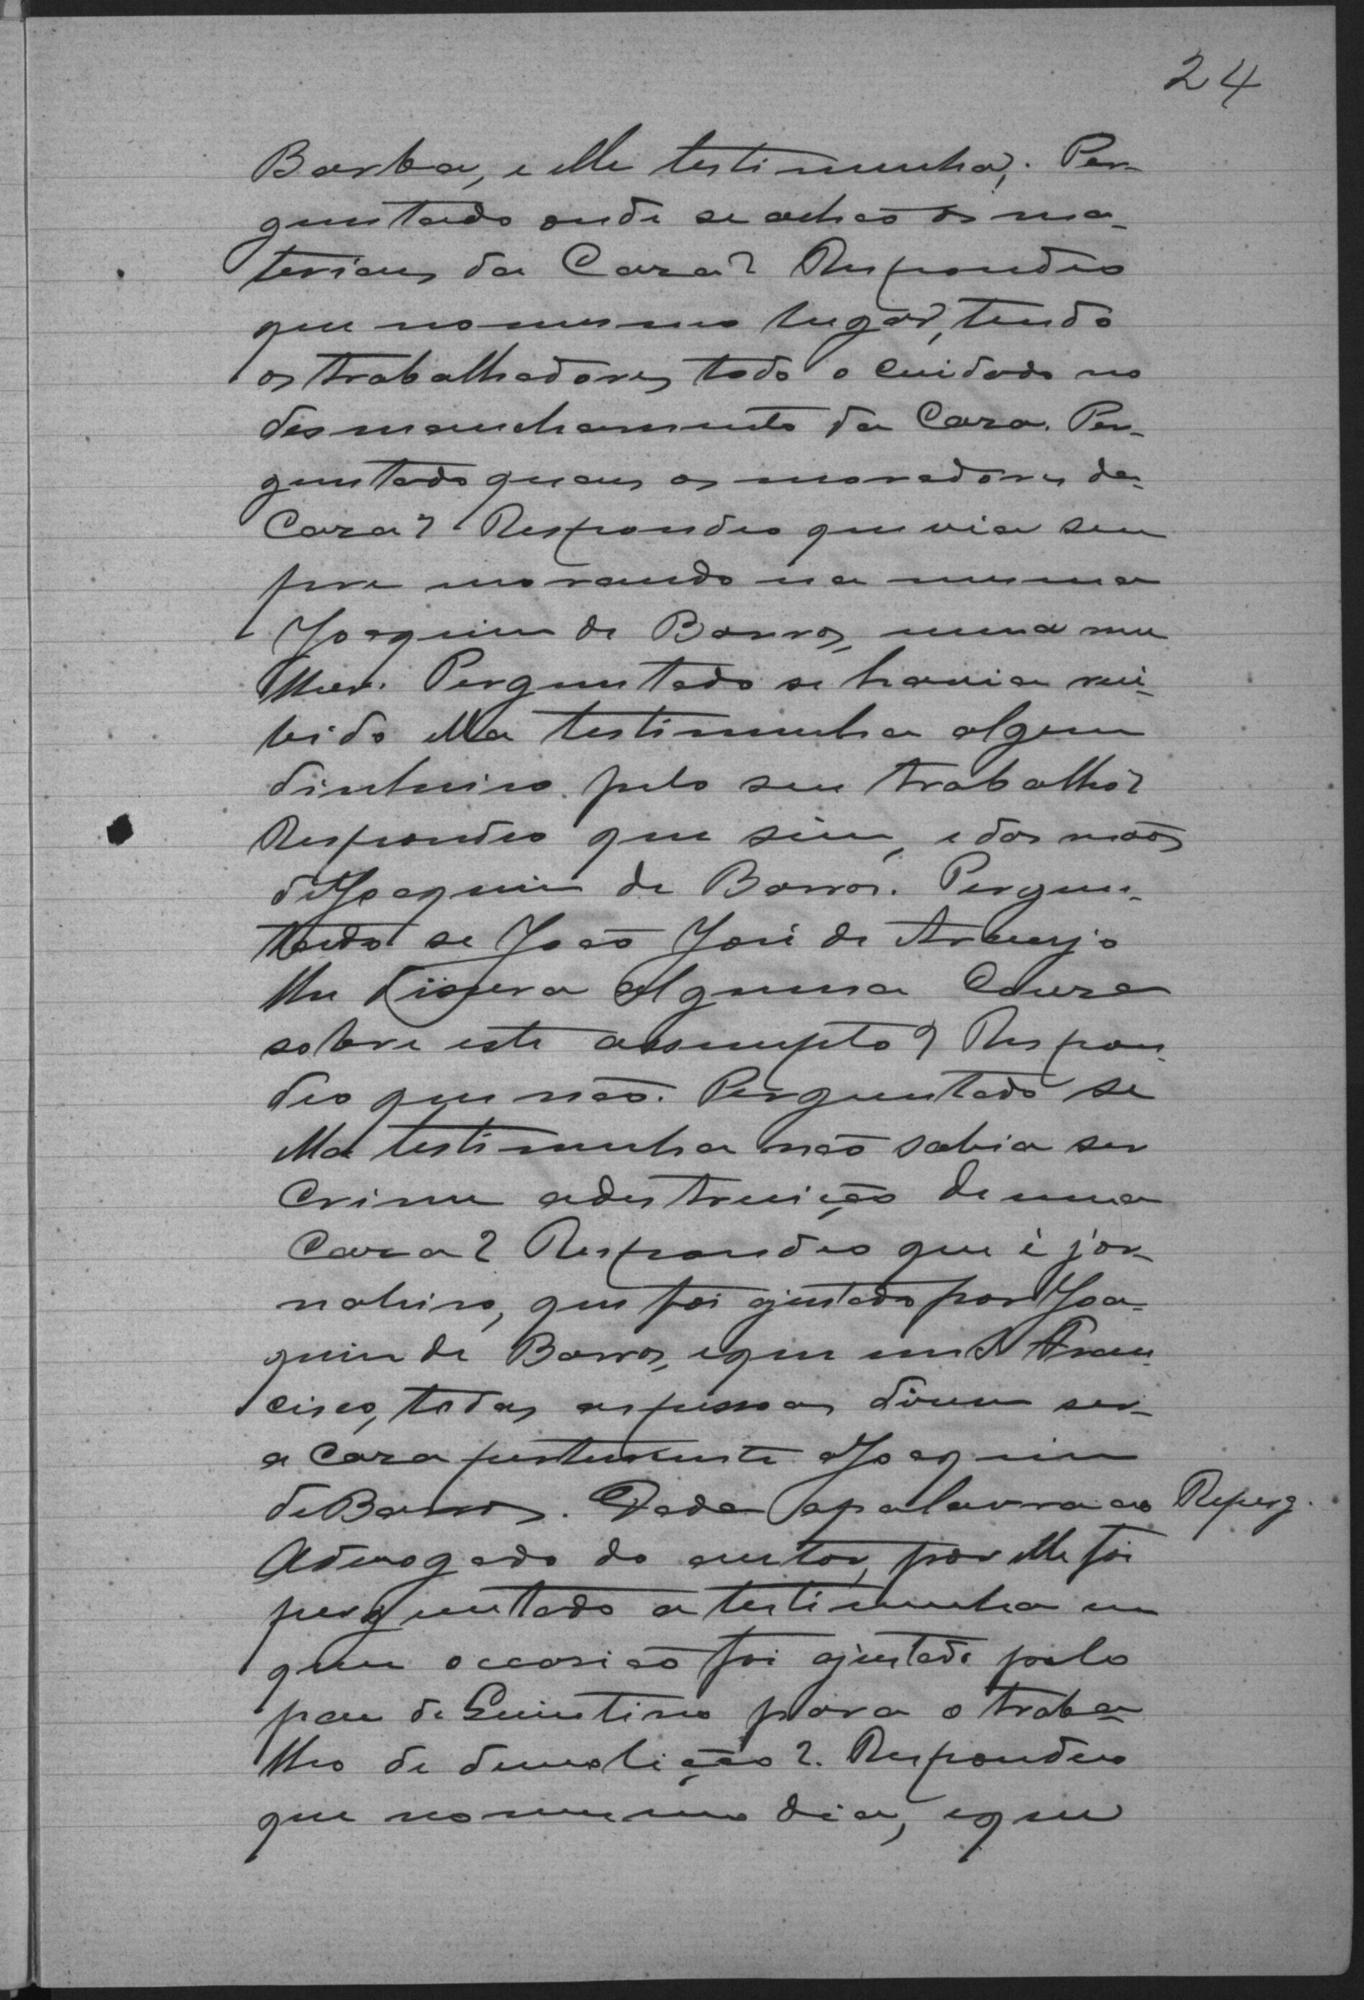 24
Barba, e elle testimunha,. Per-
guntado onde se achão os ma-
teriaes da Caza? Respondeo
que no mesmo lugar, tendo
os trabalhadores todo o cuidado no
desmanchamento da Caza. Per-
guntado quaes os moradores da
Caza? Respondeo que via sem
pre morando na mesma
Joaquim de Barros, uma mu
lher. Perguntado se havia rece-
bido ella testimunha algum
dinheiro pelo seu trabalho?
Respondeo que sim, e das mãos
de Joaquim de Barros. Pergun-
tado se João José de Araujo
lhe dissera alguma Couza
sobre este assumpto? Respon-
deo que não. Perguntado se
ella testimunha não sabia ser
Crime a destruição de uma
Caza? Respondeo que é jor-
naleiro, que foi ajustado por Joa-
quim de Barros, e que em S Fran-
cisco, todas as pessoas dizem ser
a Caza pertencente a Joaquim
de Barros. Dada a palavra ao Reperg.
Advogado do autor, por elle foi
perguntado a testimunha em
que occasião foi ajustado pelo
pae de Quintino para o traba-
lho de demolição?. Respondeo
que no mesmo dia, e que